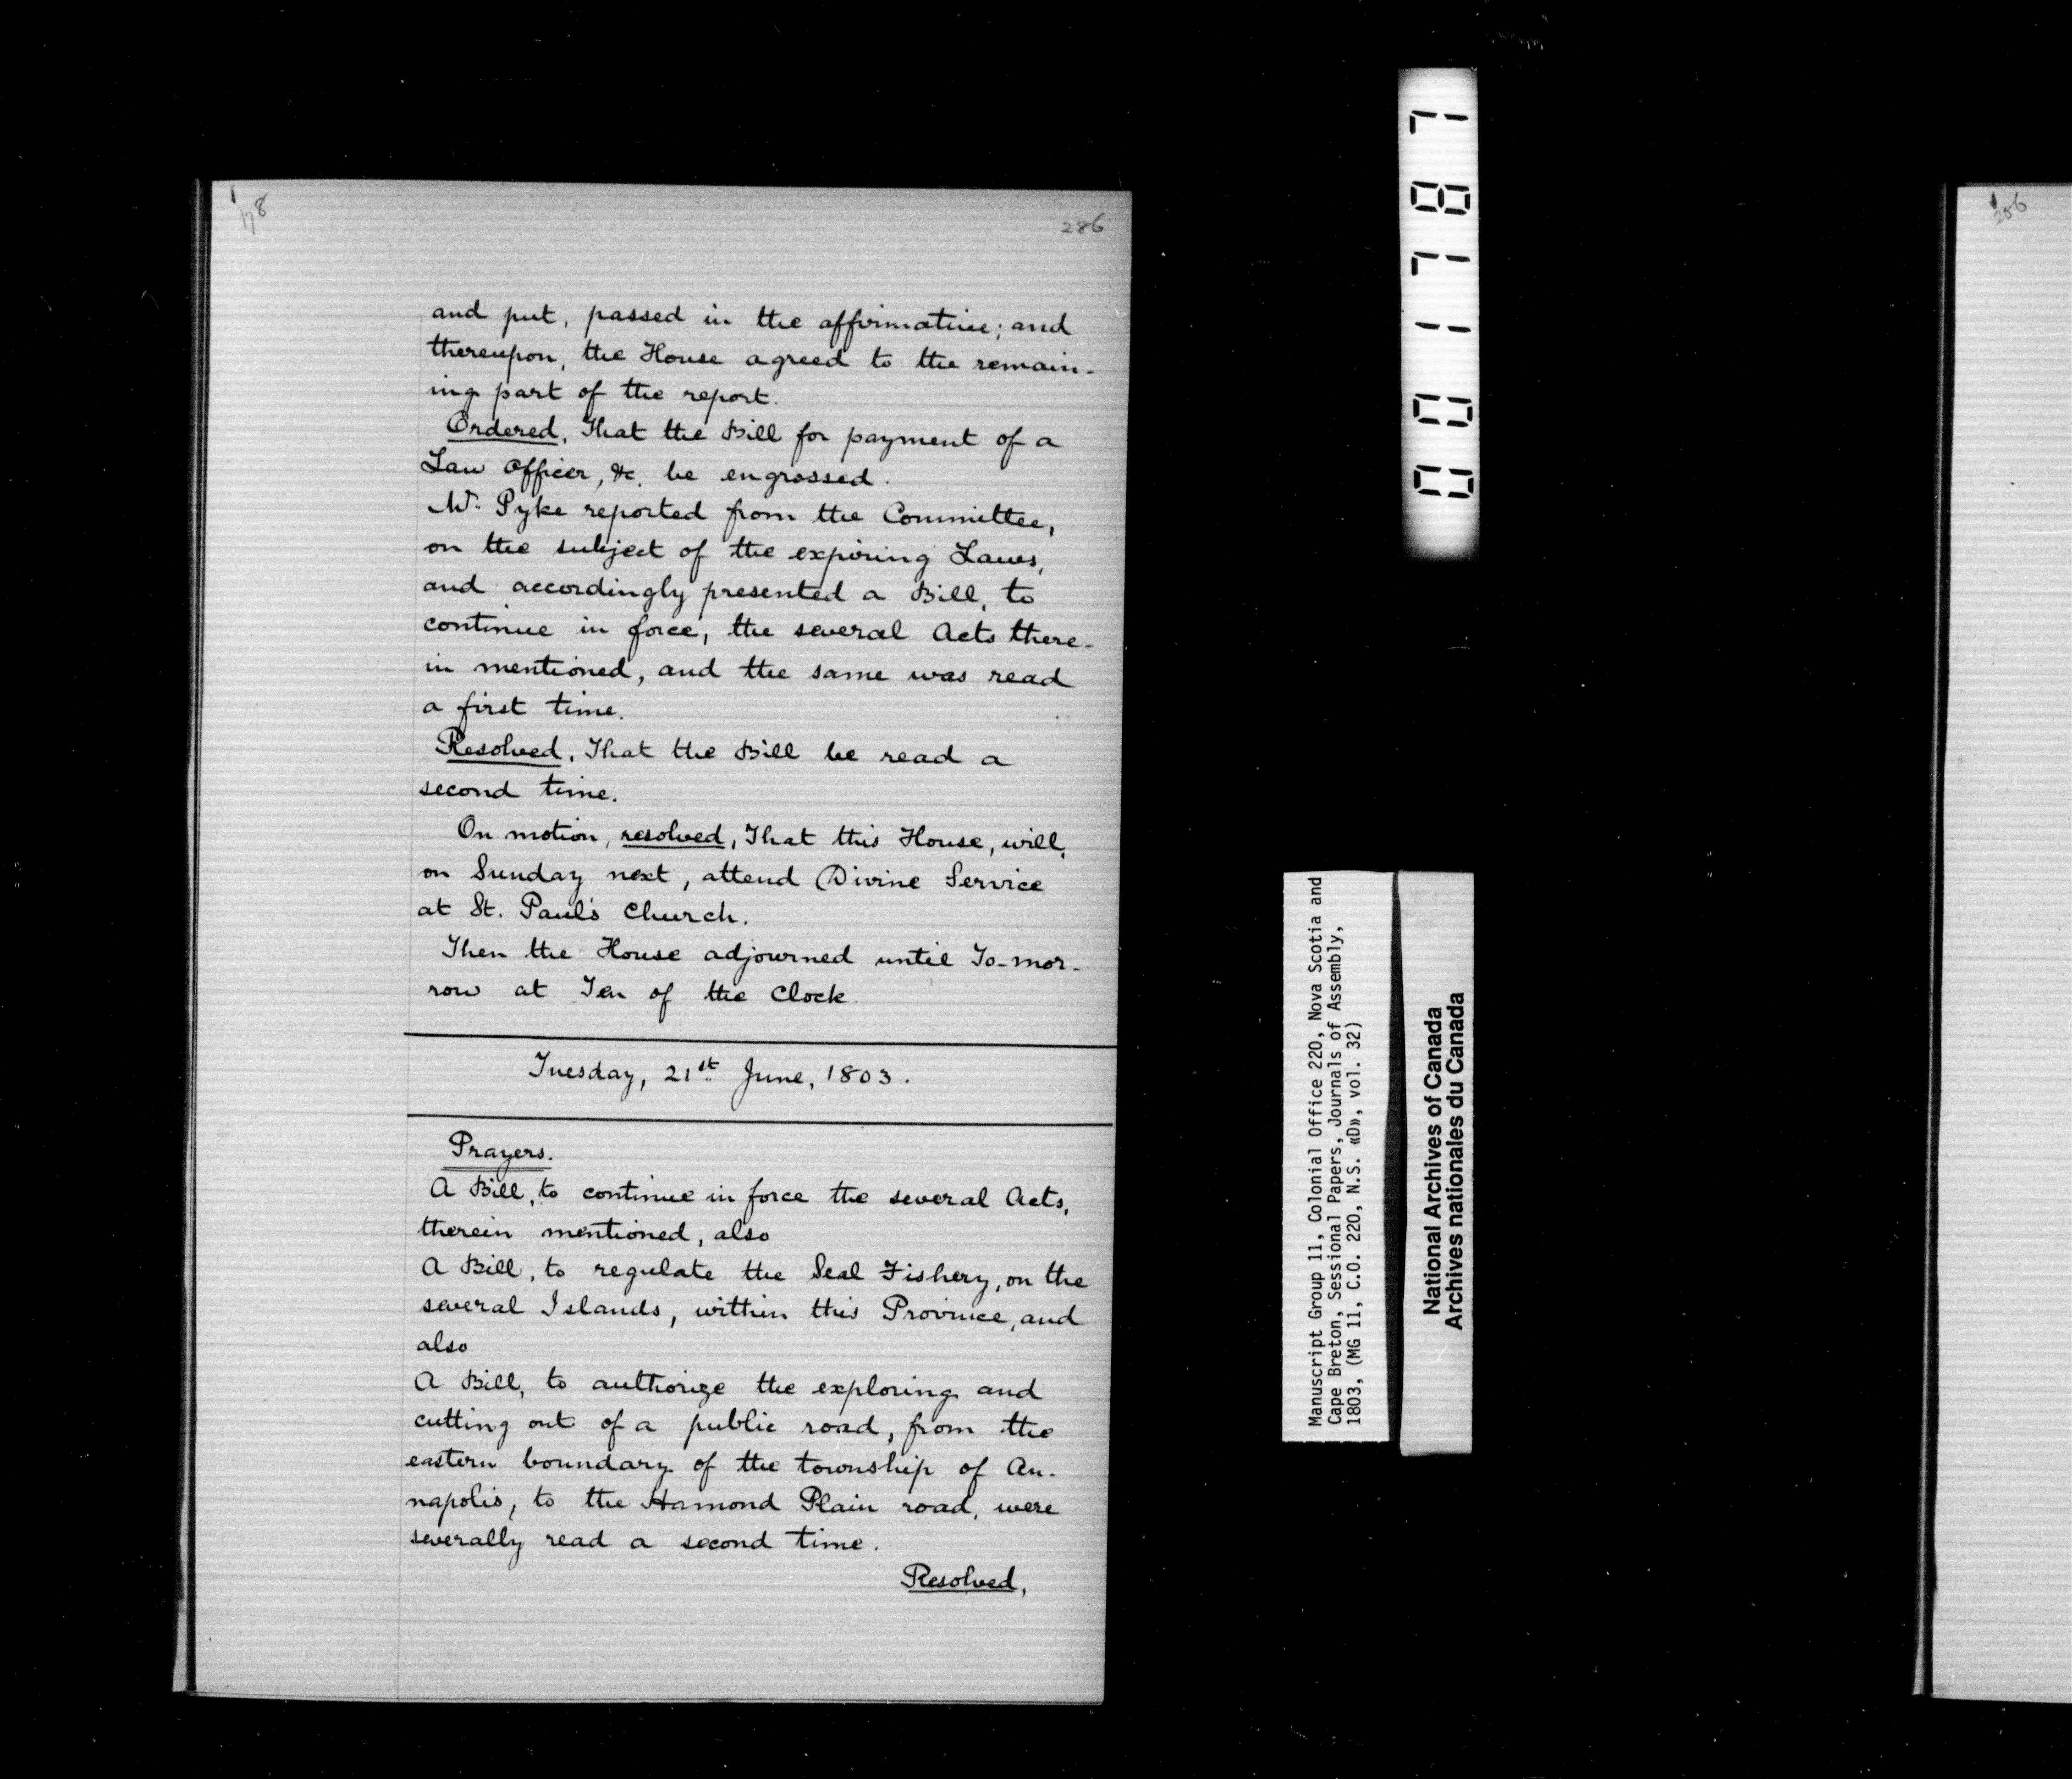 178
286
and put, passed in the affirmative; and
thereupon, the House agreed to the remain-
ing part of the report.
Ordered, That the Bill for payment of a
Law Officer, &c. be engrossed.
Mr. Pyke reported from the Committee,
on the subject of the expiring Laws,
and accordingly presented a Bill, to
continue in force, the several Acts there-
in mentioned, and the same was read
a first time.
Resolved, That the Bill be read a
second time.
On motion, resolved, That this House, will,
on Sunday next, attend Divine Service
at St. Paul's Church.
Then the House adjourned until To-mor-
row at Ten of the Clock.
Tuesday, 21st June, 1803.
Prayers.
A Bill, to continue in force the several Acts,
therein mentioned, also
A Bill, to regulate the Seal Fishery, on the
several Islands, within this Province, and
also
A Bill, to authorize the exploring and
cutting out of a public road, from the
eastern boundary of the township of An-
napolis, to the Hamond Plain road, were
severally read a second time.
Resolved,
Manuscript Group 11, Colonial Office 220, Nova Scotia and
Cape Breton, Sessional Papers, Journals of Assembly,
1803, (MG 11, C.O. 220, N.S. «D», vol. 32)
National Archives of Canada
Archives nationales du Canada